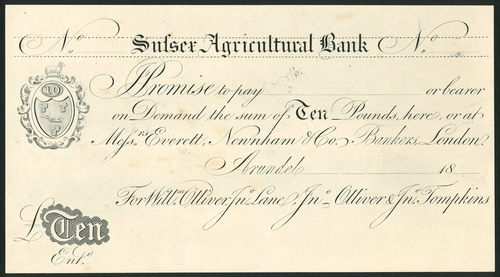 No. Sussex Agricultural Bank No.
10
I Promise to pay or bearer
on Demand the sum of Ten Pounds, here, or at
Messrs. Everett, Newnham & Co. Bankers, London.
Arundel 18
For Willm. Olliver, Jno. Lane, Jno. Olliver & Jno. Tompkins
£ Ten
Entd.